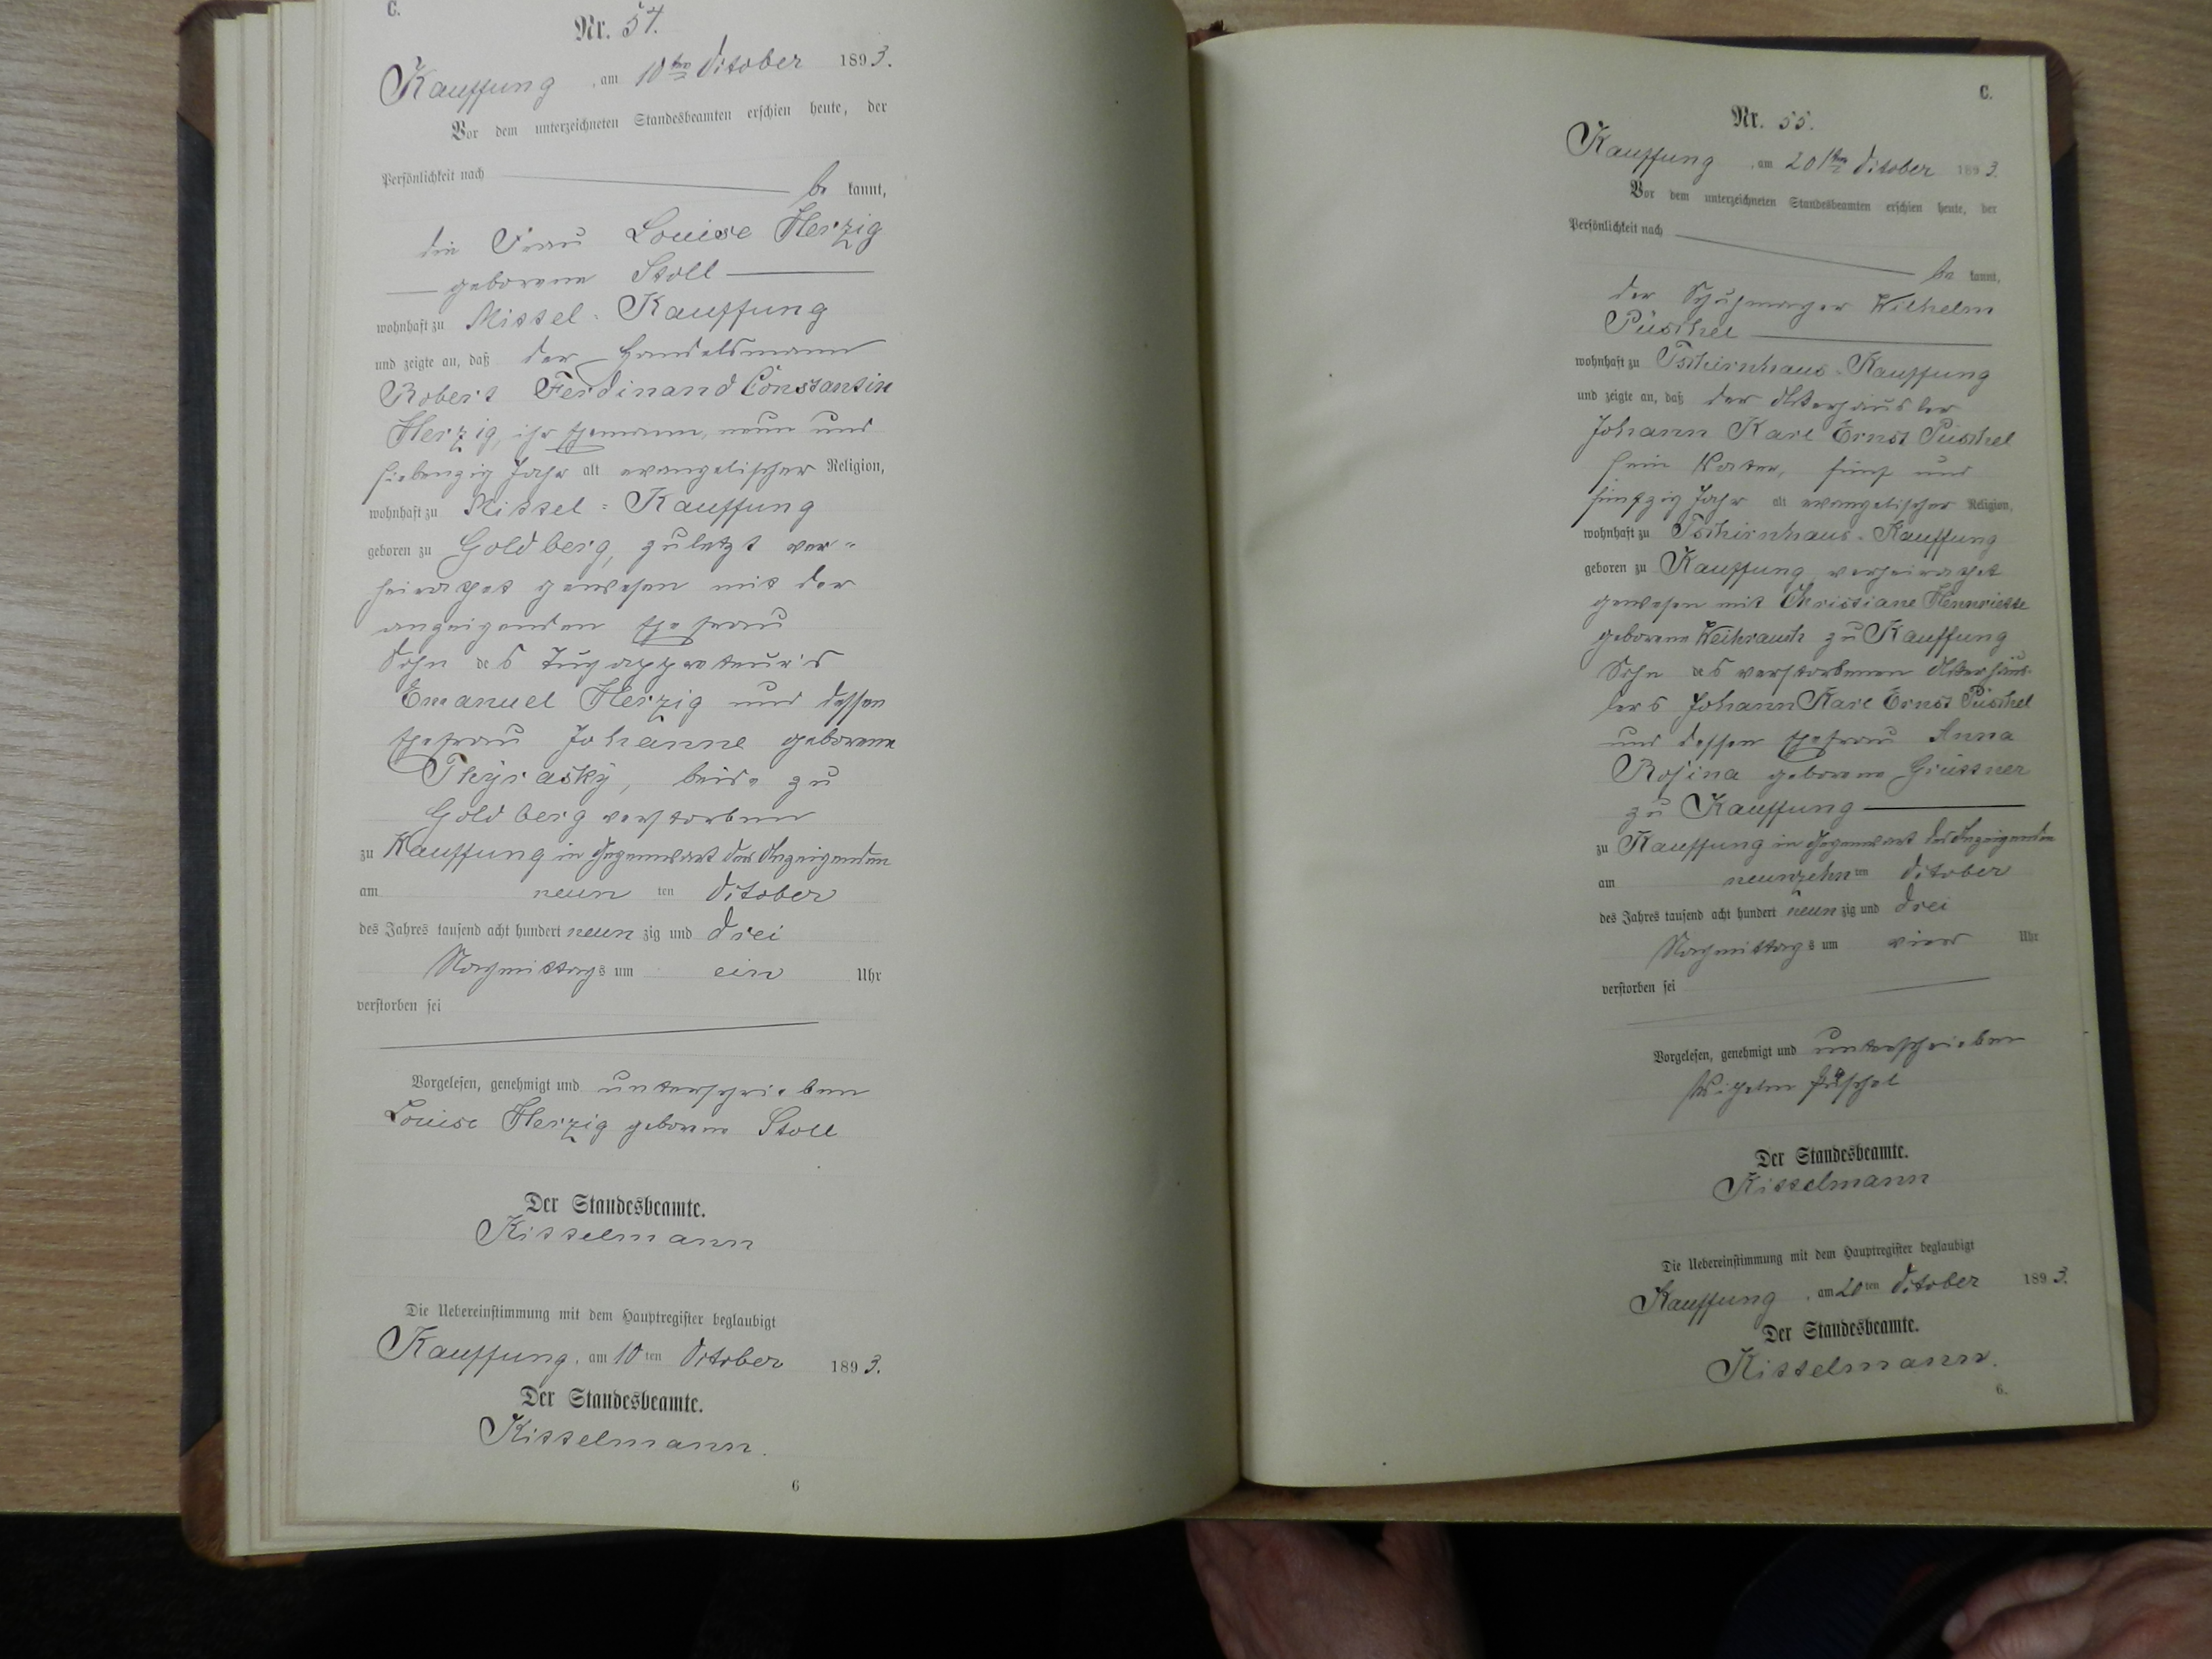 C.
Nr. 54.
Kauffung, am 10ten October 1893.
Vor dem unterzeichneten Standesbeamten erschien heute, der
Persönlichkeit nach be kannt,
die Frau Louise Herzig
geborene Stoll
wohnhaft zu Nieder-Kauffung
und zeigte an, daß der Handelsmann
Robert Ferdinand Constantin
Herzig, ihr Ehemann, neun und
siebenzig Jahr alt evangelischer Religion,
wohnhaft zu Kauffung
geboren zu Goldberg, zuletzt ver-
heirathet gewesen mit der
anzeigenden Ehefrau
Sohn des
Emanuel Herzig und dessen
Ehefrau Johanne geborene
beide zu
Goldberg verstorben
zu Kauffung in Gegenwart der Anzeigenden
am neun ten October
des Jahres tausend acht hundert neun zig und drei
Nachmittags um ein Uhr
verstorben sei
Vorgelesen, genehmigt und unterschrieben
Louise Herzig geborene Stoll
Der Standesbeamte.
Kisselmann
Die Uebereinstimmung mit dem Hauptregister beglaubigt
Kauffung, am 10ten October 1893.
Der Standesbeamte.
Kisselmann.
6
C.
Nr. 55.
Kauffung, am 20ten October 1893.
Vor dem unterzeichneten Standesbeamten erschien heute, der
Persönlichkeit nach be kannt,
der Schuhmacher Wilhelm
Püschel
wohnhaft zu Tschirnhaus-Kauffung
und zeigte an, daß der
Johann Karl Ernst Püschel
sein Vater, fünf und
fünfzig Jahr alt evangelischer Religion,
wohnhaft zu Tschirnhaus-Kauffung
geboren zu Kauffung, verheirathet
gewesen mit Christiane Henriette
geborene Weihrauch zu Kauffung
Sohn des verstorbenen
lers Johann Karl Ernst Püschel
und dessen Ehefrau Anna
Rosina geborene
zu Kauffung
zu Kauffung in Gegenwart des Anzeigenden
am neunzehn ten October
des Jahres tausend acht hundert neun zig und drei
Nachmittags um vier Uhr
verstorben sei
Vorgelesen, genehmigt und unterschrieben
Wilhelm Püschel
Der Standesbeamte.
Kisselmann
Die Uebereinstimmung mit dem Hauptregister beglaubigt
Kauffung, am 20ten October 1893.
Der Standesbeamte.
Kisselmann.
6.